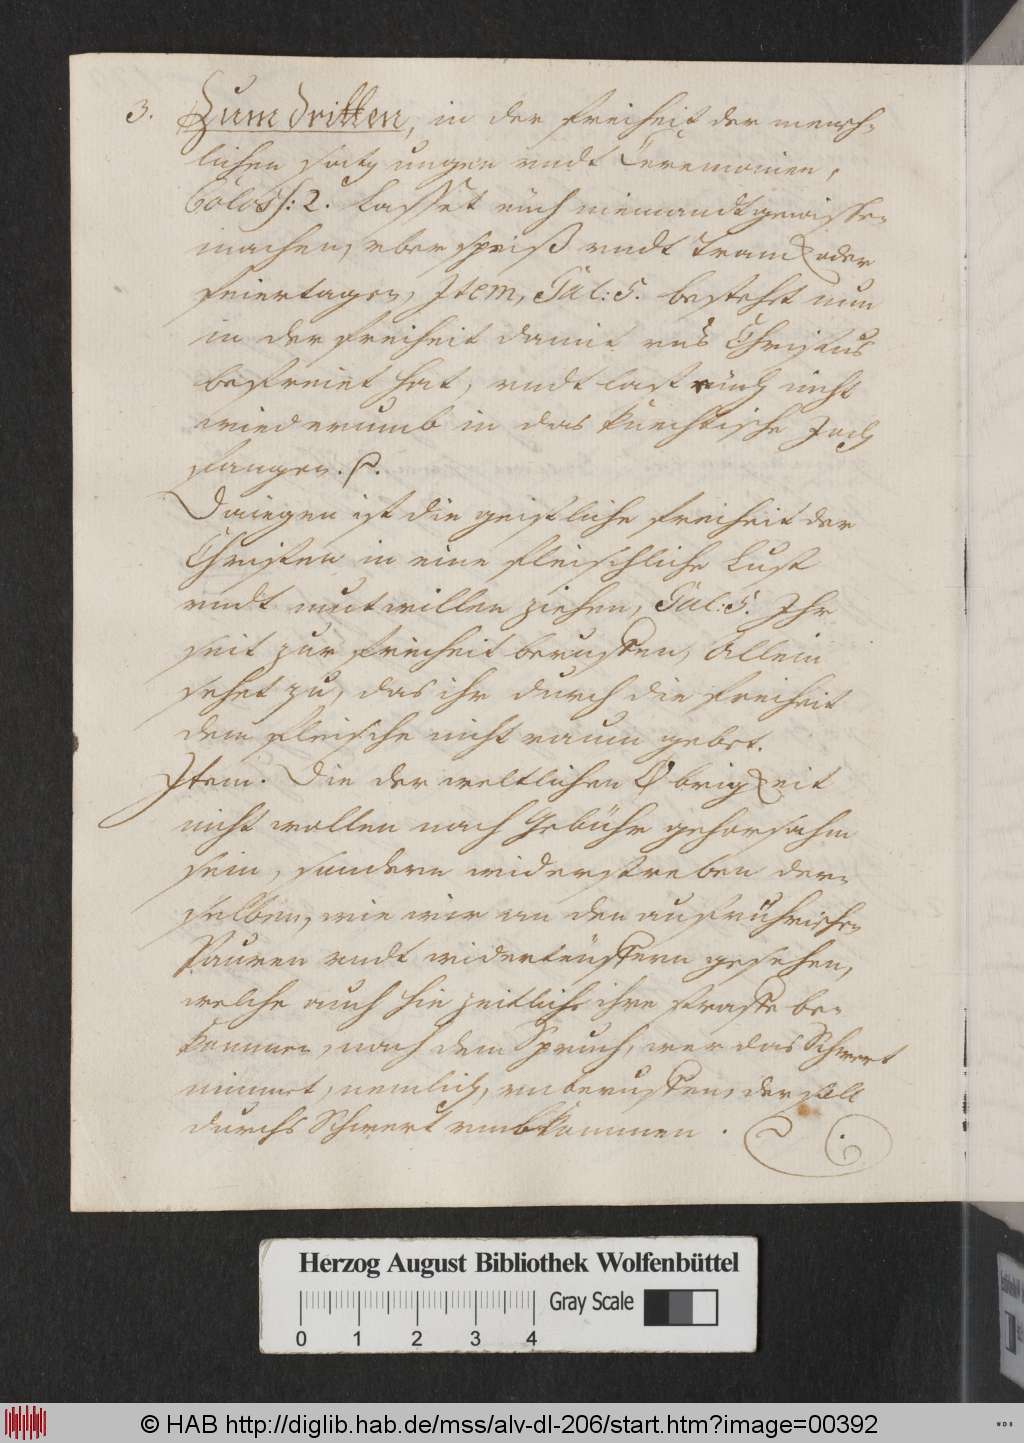 3. Zum dritten, in der freiheit der mensch-
lichen satzungen undt Ceremonien,
Coloss: 2. Lasset eüch niemandt gewissen
machen, vber speiß undt Tranck oder
feiertagen, Item, Gal: 5. bestehet nun
in der freiheit damit uns Christus
befreiet hat, undt last eüch nicht
wiederumb in das knechtische Joch
fangen.
Daiegen ist die geistliche freiheit der
Christen in eine fleischliche Lust
undt mutwillen ziehen, Gal: 5. Ihr
seit zur freiheit beruffen, Allein
sehet zu, das ihr durch die freiheit
dem fleische nicht raum gebet.
Item. Die der weltlichen Obrigkeit
nicht wollen nach Gebühr gehorsahm
sein, sondern widerstreben der-
selben, wie wir an den aufruhrischen
Pauren undt widerteüffern gesehen,
welche auch hie zeitlich ihre straffe be-
kommen, nach dem Spruch, wer das Schwert
nimmet, nemlich, unberuffen, der soll
durchs Schwert umbkommen.
Herzog August Bibliothek Wolfenbüttel
Gray Scale
0 1 2 3 4
© HAB http://diglib.hab.de/mss/alv-dl-206/start.htm?image=00392